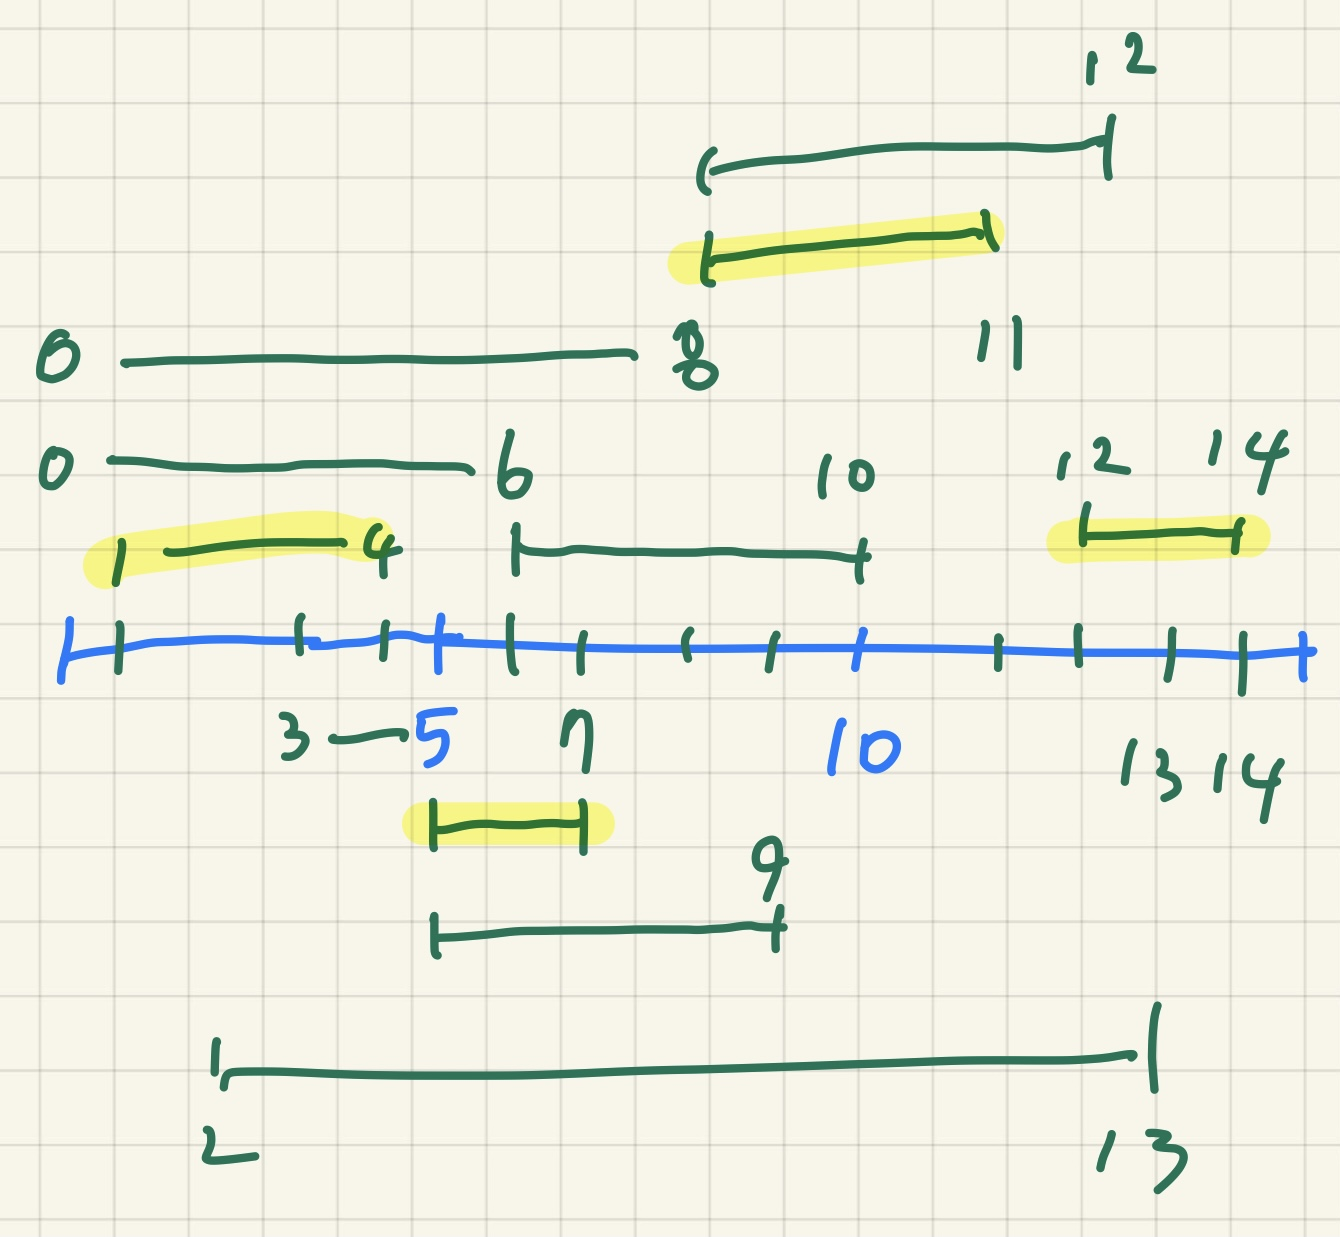 12
0 8 11
0 6 10 12 14
1 4
3 5 7 10 13 14
9
2 13